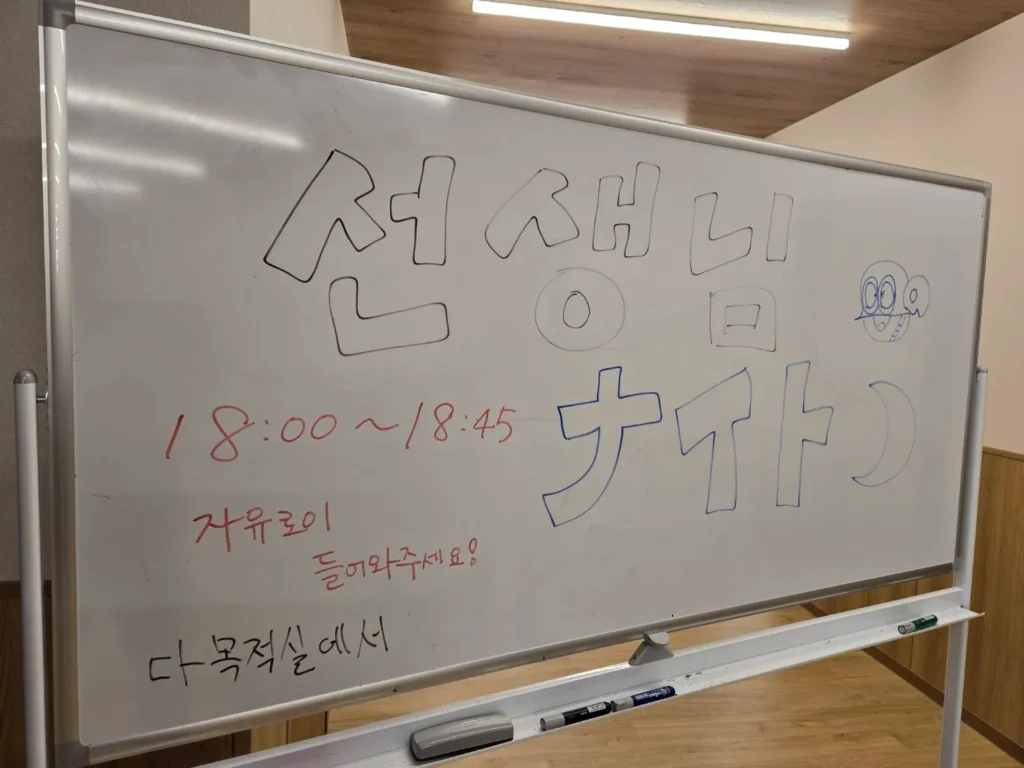 선생님
ナイト
18:00~18:45
자유로이
들어와주세요!
다목적실에서